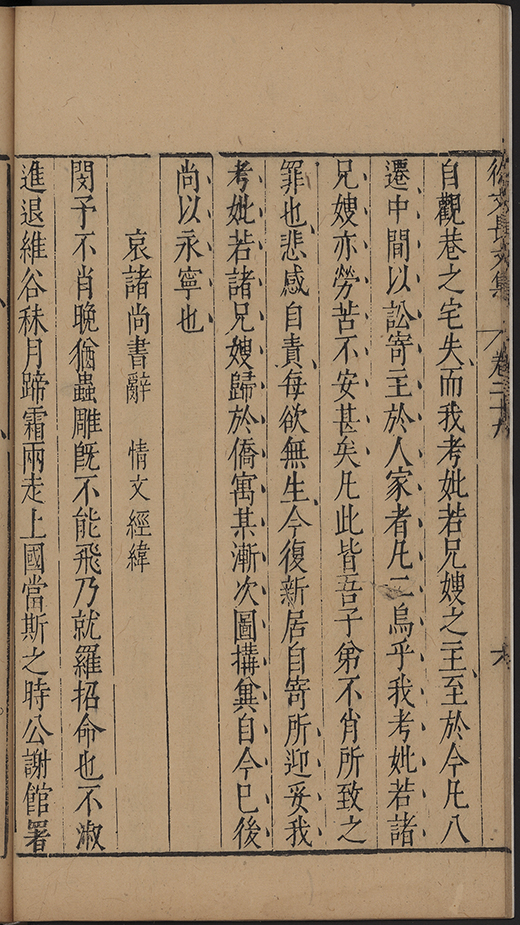 徐文長文集 卷二十九 六
自觀巷之宅失而我考妣若兄嫂之主至於今凢八
遷中間以訟寄主於人家者凢二烏乎我考妣若諸
兄嫂亦勞苦不安甚矣凢此皆吾子弟不肖所致之
罪也悲感自責每欲無生今復新居自寄所迎妥我
考妣若諸兄嫂歸於僑寓某漸次圖搆兾自今巳後
尚以永寧也
哀諸尚書辭 情文經緯
閔予不肖晚猶蟲雕旣不能飛乃就羅招命也不淑
進退維谷秣月蹄霜兩走上國當斯之時公謝館署